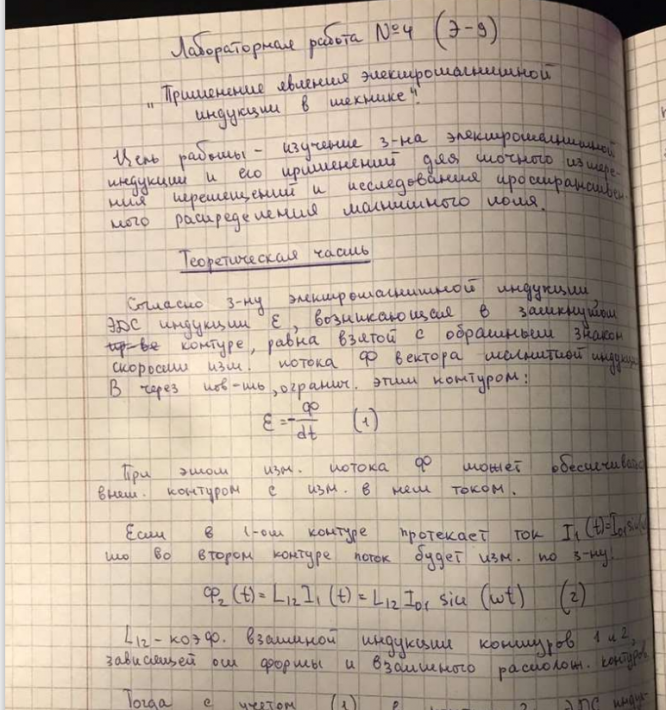 Лабораторная работа №4 (Э-9)
"Применение явления электромагнитной
индукции в технике".
Цель работы - изучение з-на электромагнитной
индукции и его применений для точного измере-
ния перемещений и исследования пространствен-
ного распределения магнитного поля.
Теоретическая часть
Согласно з-ну электромагнитной индукции
ЭДС индукции ε, возникающая в замкнутом
контуре, равна взятой с обратным знаком
скорости изм. потока Ф вектора магнитной индукц
B через пов-ть, огранич. этим контуром:
ε = -Ф/dt (1)
При этом изм. потока Ф может обеспечиват
внеш. контуром с изм. в нем током.
Если в 1-ом контуре протекает ток I₁(t)=I₀₁sin(ω
то во втором контуре поток будет изм. по з-ну:
Ф₂(t) = L₁₂I₁(t) = L₁₂I₀₁ sin(ωt) (2)
L₁₂ - коэф. взаимной индукции контуров 1 и 2,
зависящей от формы и взаимного располож. контуров
Тогда с учетом (1) ЭДС индук-